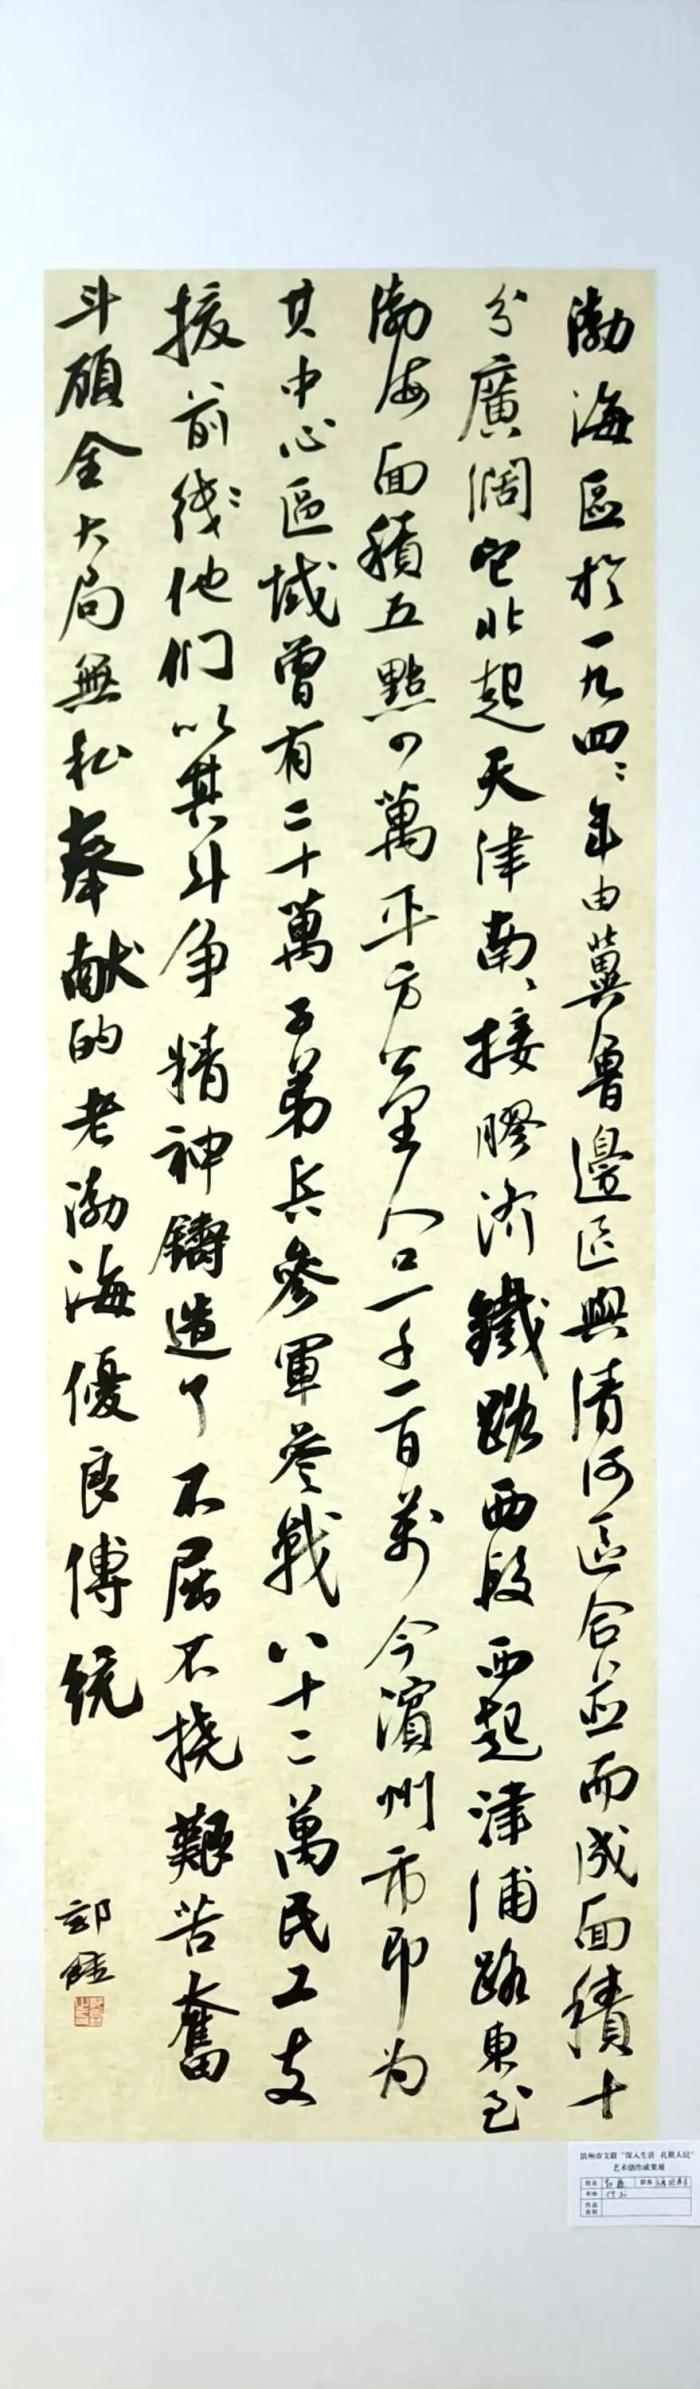 渤海區於一九四〻年由冀魯邊區與清河區合並而成面積十
分廣闊它北起天津南〻接膠济鐵路西段西起津浦路東至
渤海面積五點四萬平方公里人口一千一百萬今濱州市即为
其中心區域曾有二十萬子弟兵參軍參戰八十二萬民工支
援前线〻他们以其斗争精神鑄造了不屈不撓艱苦奮
斗顾全大局無私奉献的老渤海優良傳統
滨州市文联"深入生活 扎根人民"
艺术创作成果展
姓名
作品